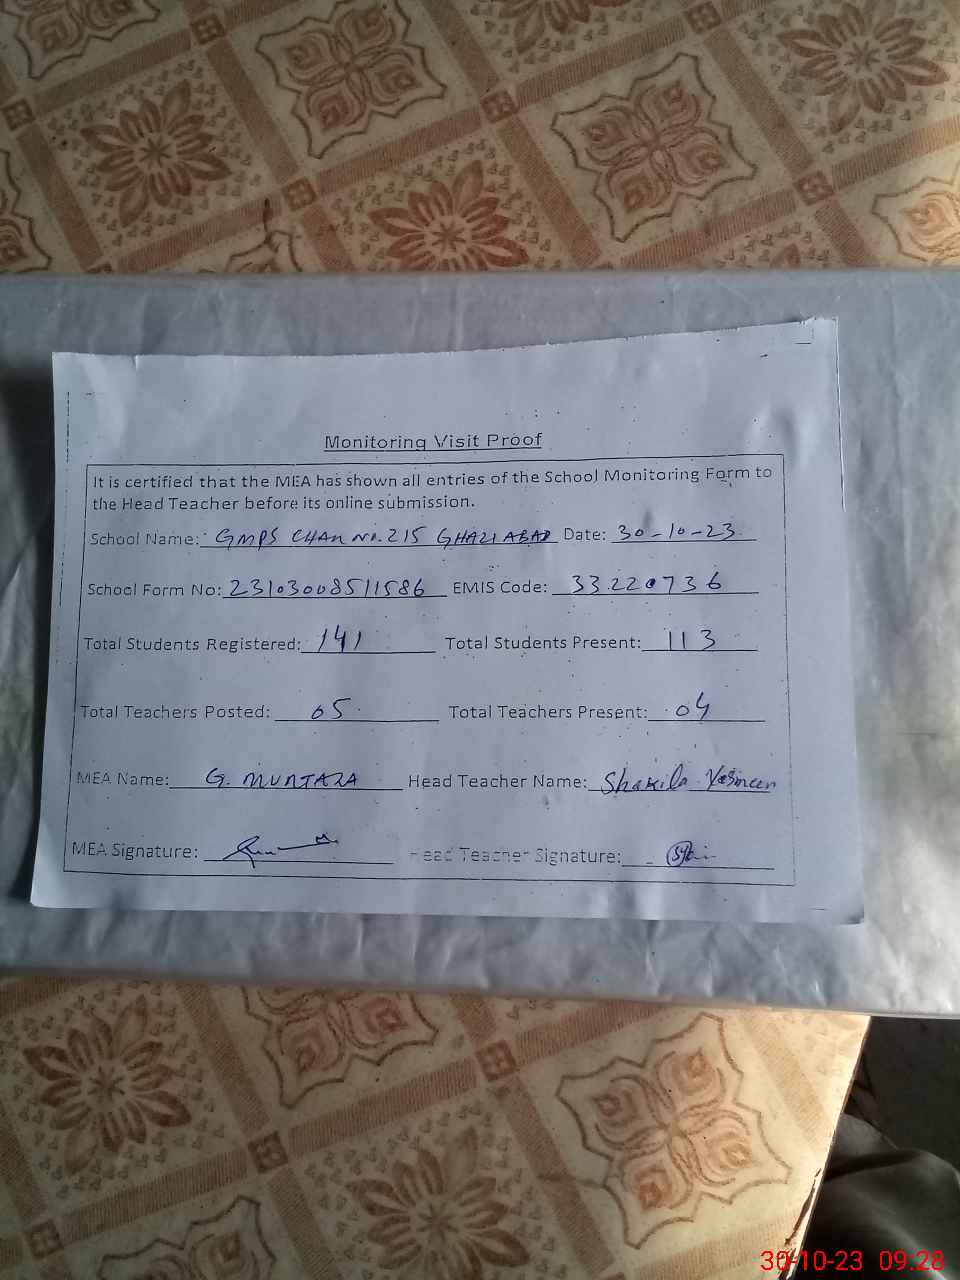 Monitoring Visit Proof
It is certified that the MEA has shown all entries of the School Monitoring Form to
the Head Teacher before its online submission.
School Name: GMPS CHAK NO. 215 GHAZIABAD Date: 30-10-23
School Form No: 23103008511586 EMIS Code: 33220736
Total Students Registered: 141 Total Students Present: 113
Total Teachers Posted: 05 Total Teachers Present: 04
MEA Name: G. MURTAZA Head Teacher Name: Shakila Yasmeen
MEA Signature: Head Teacher Signature:
30-10-23 09.28